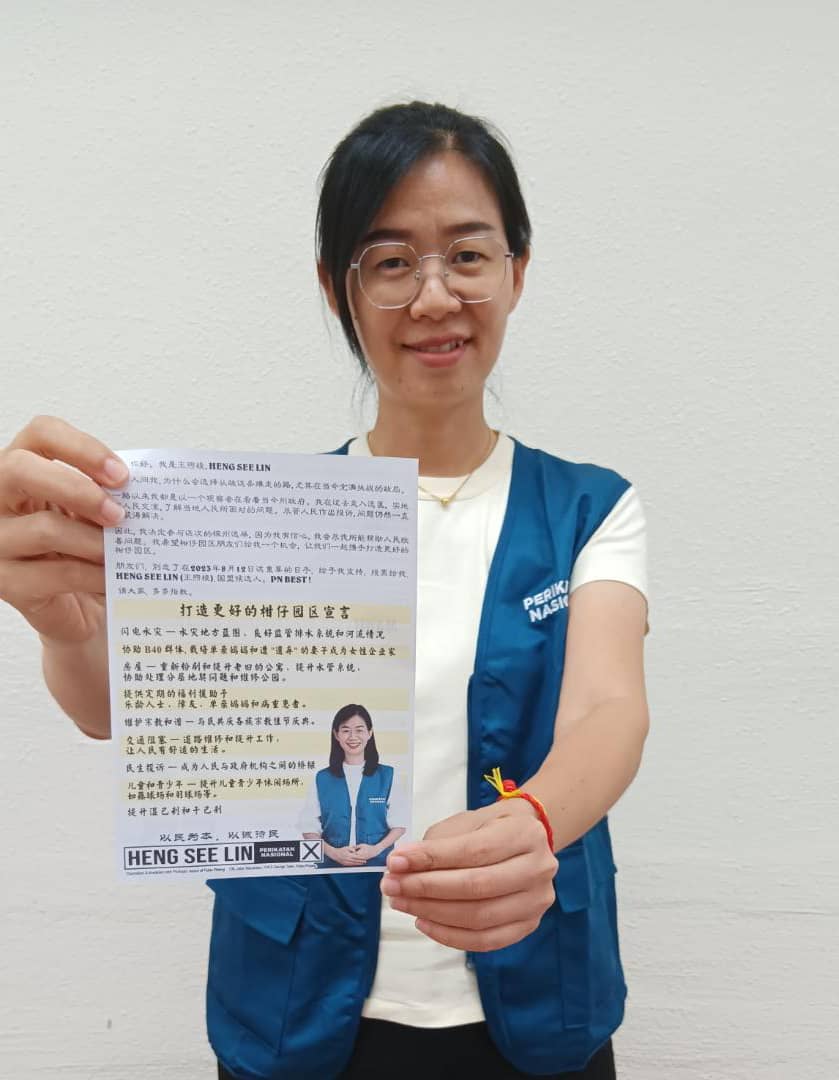 你好，我是王煦棱，HENG SEE LIN
人问我，为什么会选择从政这条难走的路，尤其在当今充满挑战的政局。
一路以来我都是以一个观察者在看着当今州政府。我在过去走入选区，实地
人民交流，了解当地人民所面对的问题。尽管人民作出投诉，问题仍然一直
获得解决。
因此，我决定参与这次的槟州选举，因为我有信心，我会尽我所能帮助人民改
善问题。我希望柑仔园区朋友们给我一个机会，让我们一起携手打造更好的
柑仔园区。
朋友们，别忘了在2023年8月12日这重要的日子，给予我支持，投票给我
HENG SEE LIN (王煦棱)，国盟候选人，PN BEST!
请大家，多多指教。
打造更好的柑仔园区宣言
闪电水灾 — 水灾地方蓝图、良好监管排水系统和河流情况
协助 B40 群体，栽培单亲妈妈和遭"遗弃"的妻子成为女性企业家
房屋 — 重新粉刷和提升老旧的公寓、提升水管系统，
协助处理分层地契问题和维修公园。
提供定期的福利援助予
乐龄人士、障友、单亲妈妈和病重患者。
维护宗教和谐 — 与民共庆各族宗教佳节庆典。
交通阻塞 — 道路维修和提升工作，
让人民有舒适的生活。
民生投诉 — 成为人民与政府机构之间的桥梁
儿童和青少年 — 提升儿童青少年休闲场所，
如藤球场和羽球场等。
提升湿巴刹和干巴刹
以民为本，以诚待民
HENG SEE LIN PERIKATAN NASIONAL X
PERIKATAN
NASIONAL